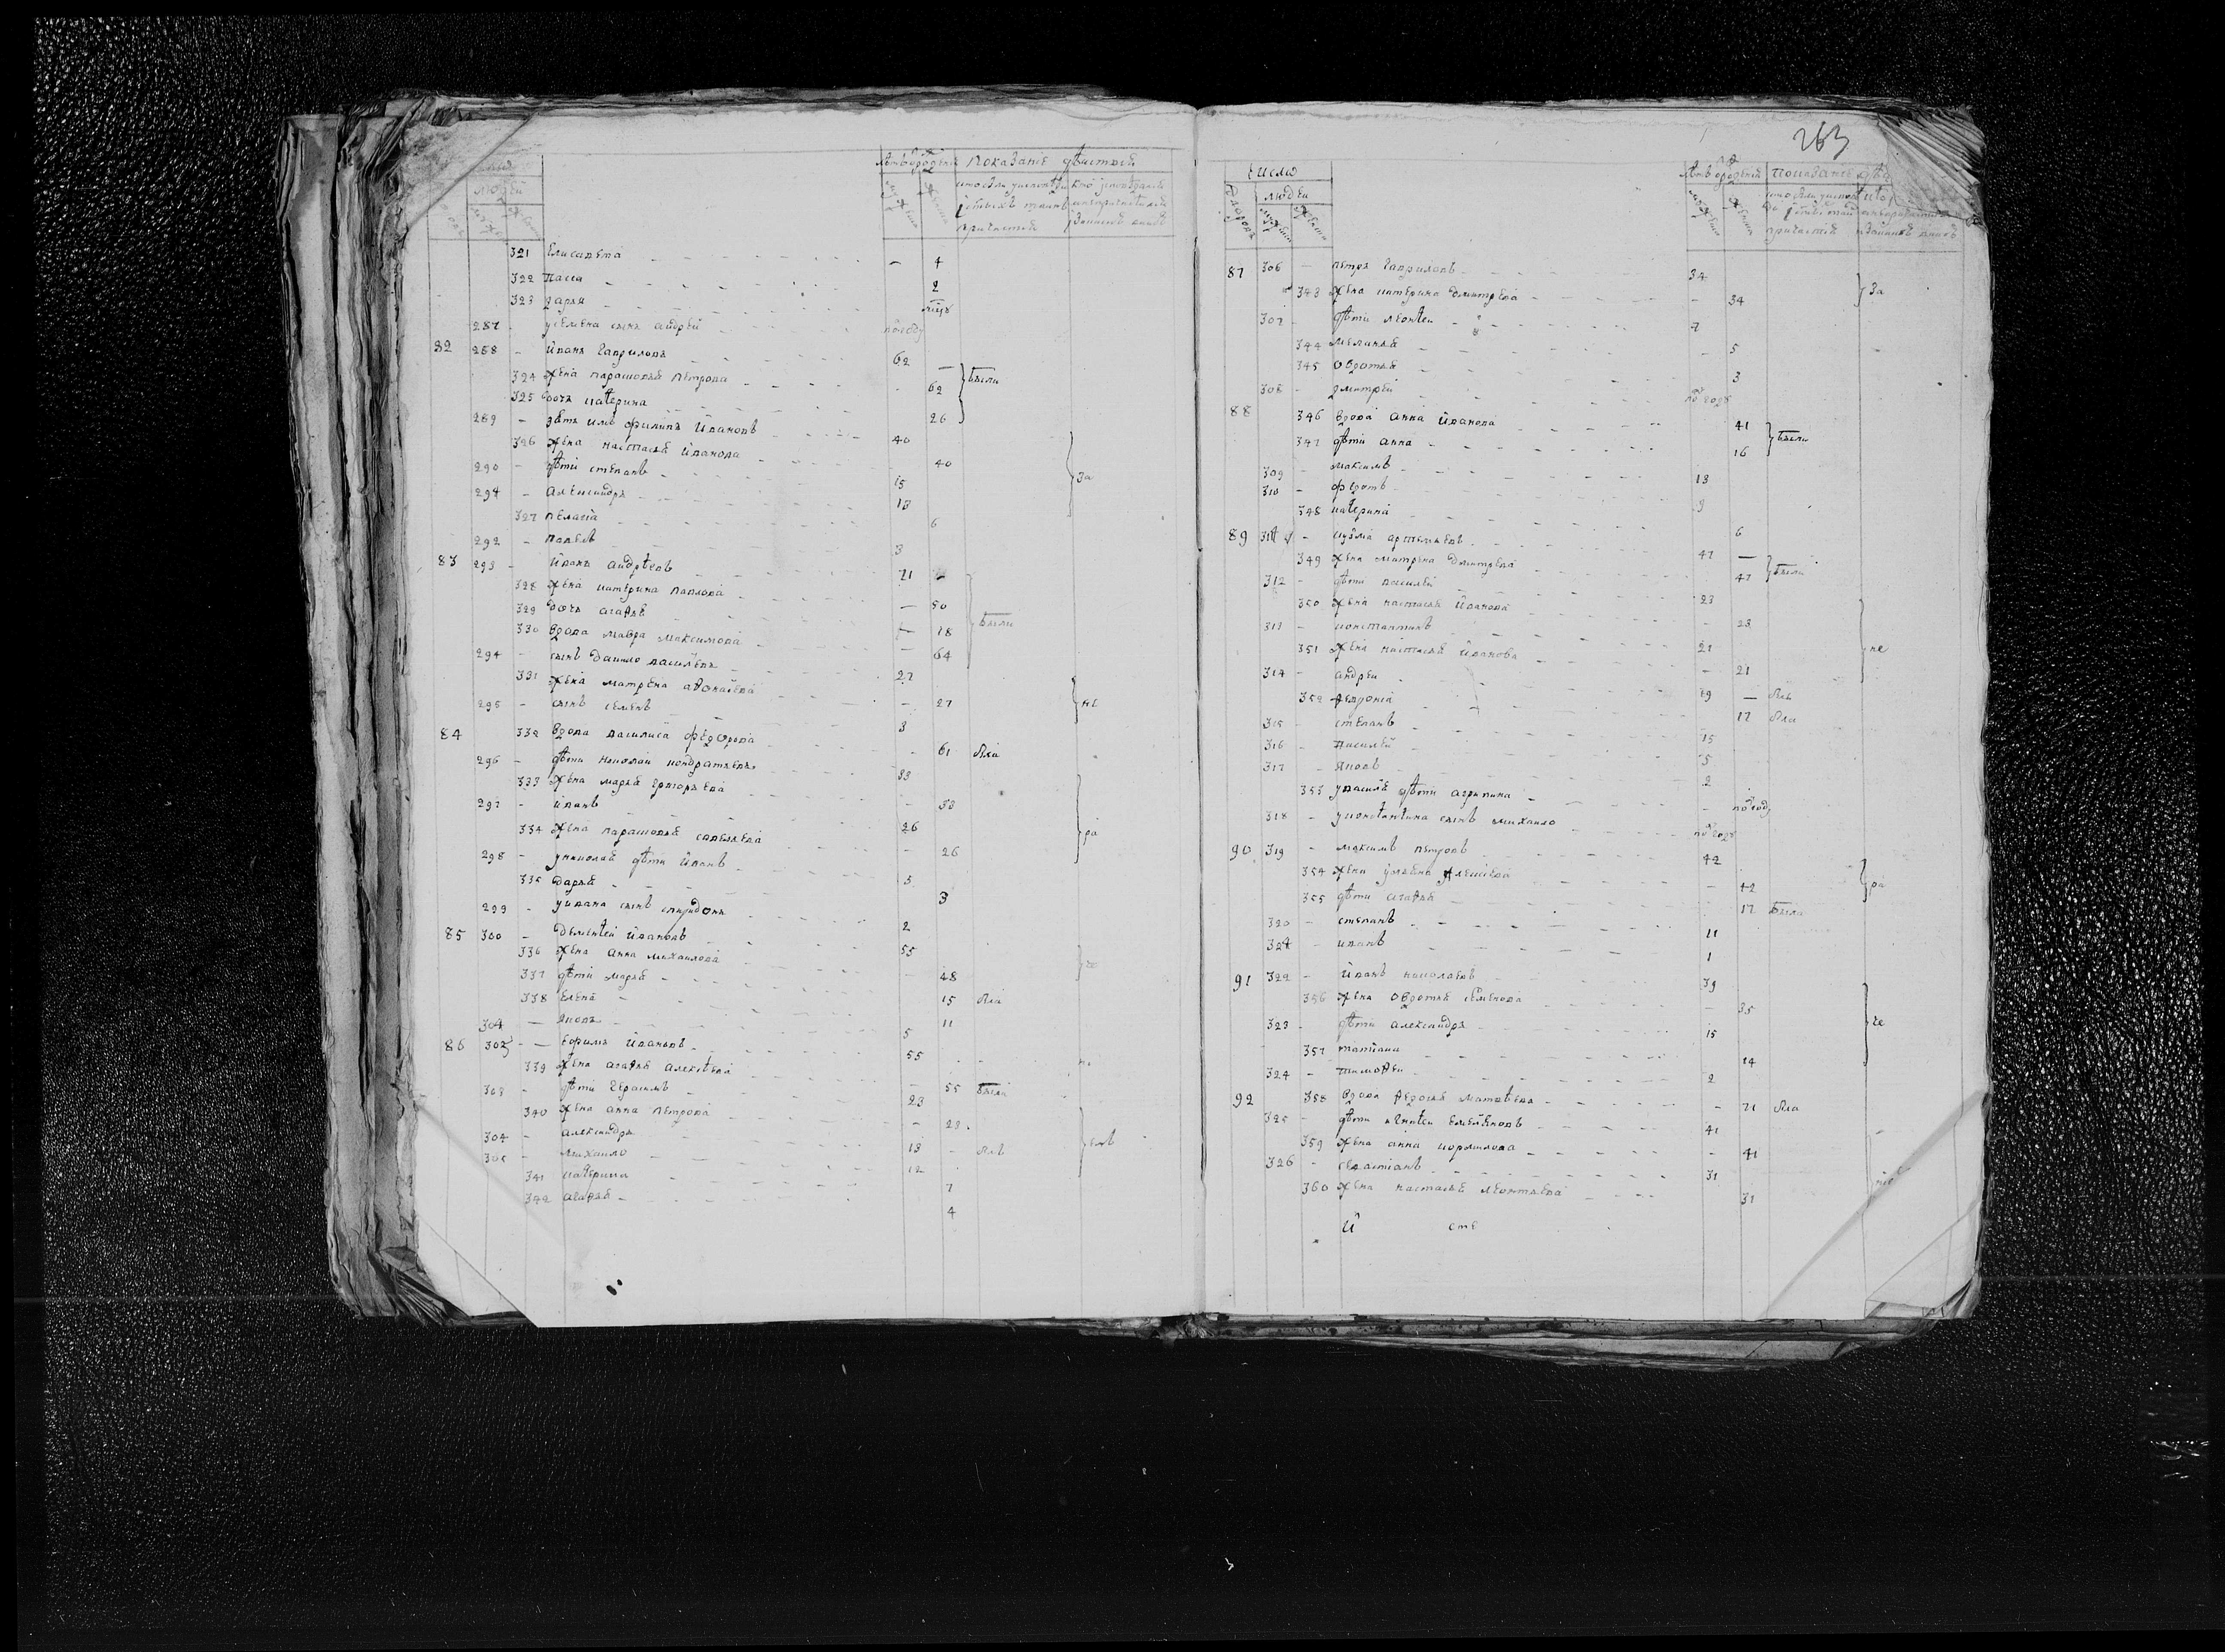 263
Показание действъ
321 Елисавета - 4
322 Васса 2
323 дарья мцъ
287 - усемена сынъ андреи
82 288 - Иванъ Гавриловъ 62 -
324 жена парасковья Петрова - 62 были
325 дочь катерина 26
289 - зять имъ филипъ Ивановъ 40
326 жена настасья Иванова 40
290 - дѣти степанъ 15 за
291 - Александръ 13
327 пелагіа 6
292 - павелъ 3
83 293 - Иванъ андрѣевъ 71 -
328 жена катерина павлова - 50
329 дочь агафья - 18 были
330 вдова мавра максимова - 64
294 - сынъ данило васильевъ 27
331 жена матрена афонасева - 27 не
295 - сынъ семенъ 3
84 332 вдова василиса федорова - 61 была
296 - дѣти николаи кондратьевъ 33
333 жена марья григорьева - 33
297 - иванъ 26
334 жена парасковья савельева - 26 ра
298 - униколая дѣти Иванъ 5
335 дарья 3
299 - уивана сынъ спиридонъ 2
85 300 - дементеи Ивановъ 55
336 жена анна михаилова - 48
337 дѣти марья 15 была
338 елена 11
301 - яковъ 5
86 302 - ефимъ Ивановъ 55
339 жена агафья алексѣева - 55 была
303 - дѣти герасимъ 23
340 жена анна Петрова - 23
304 - александръ 13 - былъ
305 - михаило 12
341 катерина 7
342 агафья 4
Число
людеи
87 306 - петръ Гавриловъ 34
343 жена катерина дмитрева - 34 за
307 - дѣти леонтеи 7
344 меланья - 5
345 овдотья 3
308 - дмитреи полгода
88 346 вдова анна Иванова 41
347 дѣти анна 16 были
309 - максимъ 13
310 - федотъ 9
348 катерина 6
89 311 - кузма артемьевъ 47 -
349 жена матрена дмитрева 47 были
312 - дѣти василеи 23
350 жена настасья Иванова - 23
313 - константинъ 21
351 жена настасья Иванова - 21 не
314 - андреи 19 - былъ
352 февронія 17 была
315 - степанъ 15
316 - василеи 5
317 - яковъ 2
353 увасилья дѣти агрипина - полгоду
318 - уконстантина сынъ михаило полгода
90 319 - максимъ петровъ 42
354 жена ульяна Алексева - 42 ра
355 дѣти агафья - 17 была
320 - степанъ 11
321 - иванъ 1
91 322 - Иванъ николаевъ 39
356 жена овдотья семенова - 35
323 - дѣти александръ 15 ге
357 татіана 14
324 - тимофеи 2
92 358 вдова федосья матвѣева - 71 была
325 - дѣти игнатеи емельяновъ 41
359 жена анна кормилова - 41
326 - севастіанъ 31
360 жена настасья леонтьева 31
И сте